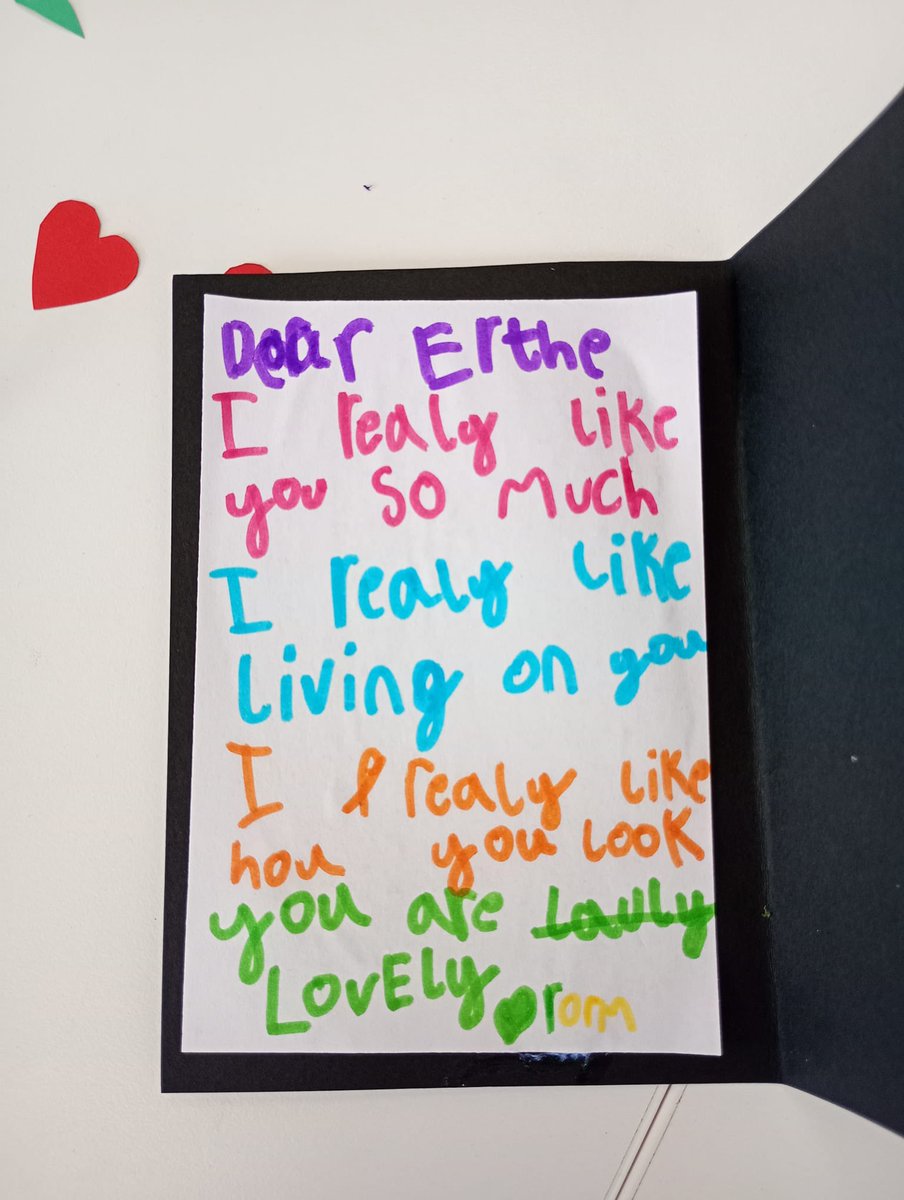 Dear Erthe
I realy like
you so much
I realy like
living on you
I realy like
hou you look
you are Lavly
LovEly rorm